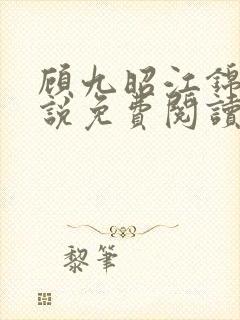 顾九昭江錦
說免費閱讀
黎筆